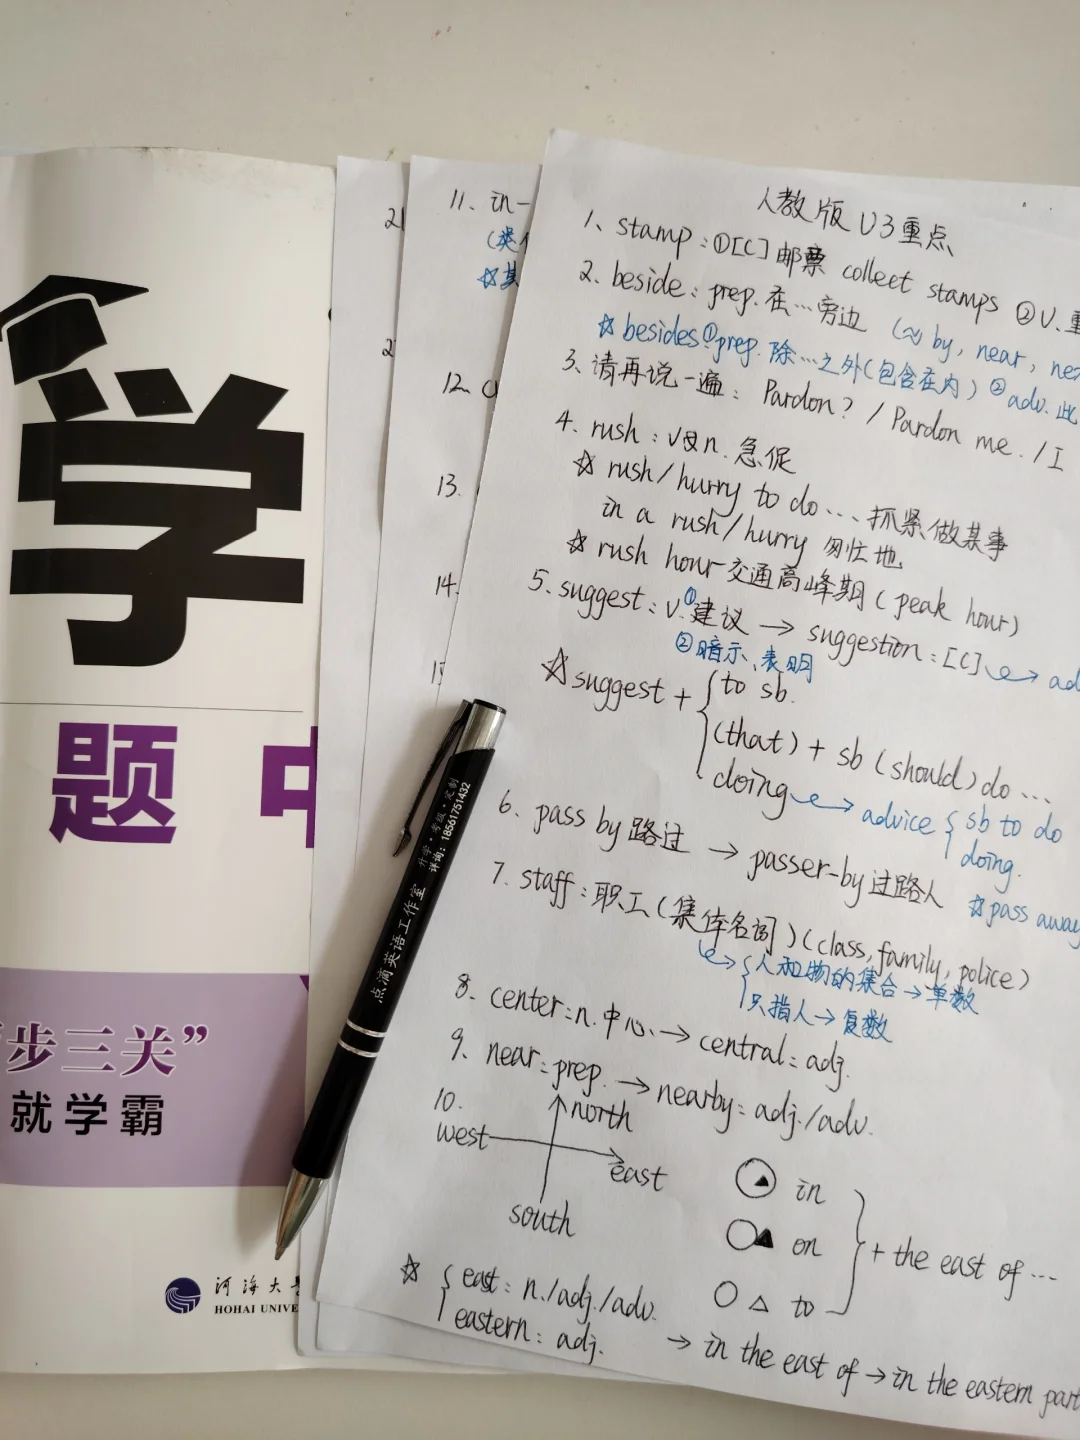 学
题 中
步三关”
就学霸
河海大
HOHAI UNIVE
21
2
11. in
(类
☆其
12.
13.
14.
点滴英语工作室 升学·考级·定制
详询：18561751432
人教版 U3重点
1、stamp：①[C]邮票 collect stamps ②v.
2. beside：prep.在…旁边 (≈ by, near,
☆besides①prep.除…之外(包含在内) ②adv.此
3、请再说一遍：Pardon? / Pardon me. / I
4. rush：v.&n.急促
☆ rush/hurry to do … 抓紧做某事
in a rush/hurry 匆忙地
☆ rush hour 交通高峰期 (peak hour)
5. suggest：v.①建议 → suggestion：[C] → ad
②暗示、表明
☆suggest + { to sb.
(that) + sb (should) do …
doing → advice { sb to do
doing.
6. pass by 路过 → passer-by 过路人 ☆pass away
7. staff：职工(集体名词)(class, family, police)
→ { 人和物的集合 → 单数
只指人 → 复数
8. center：n.中心 → central：adj.
9. near：prep. → nearby：adj./adv.
10.
north
west
east
south
in
on
to
+ the east of …
☆ { east：n./adj./adv.
eastern：adj. → in the east of → in the eastern part